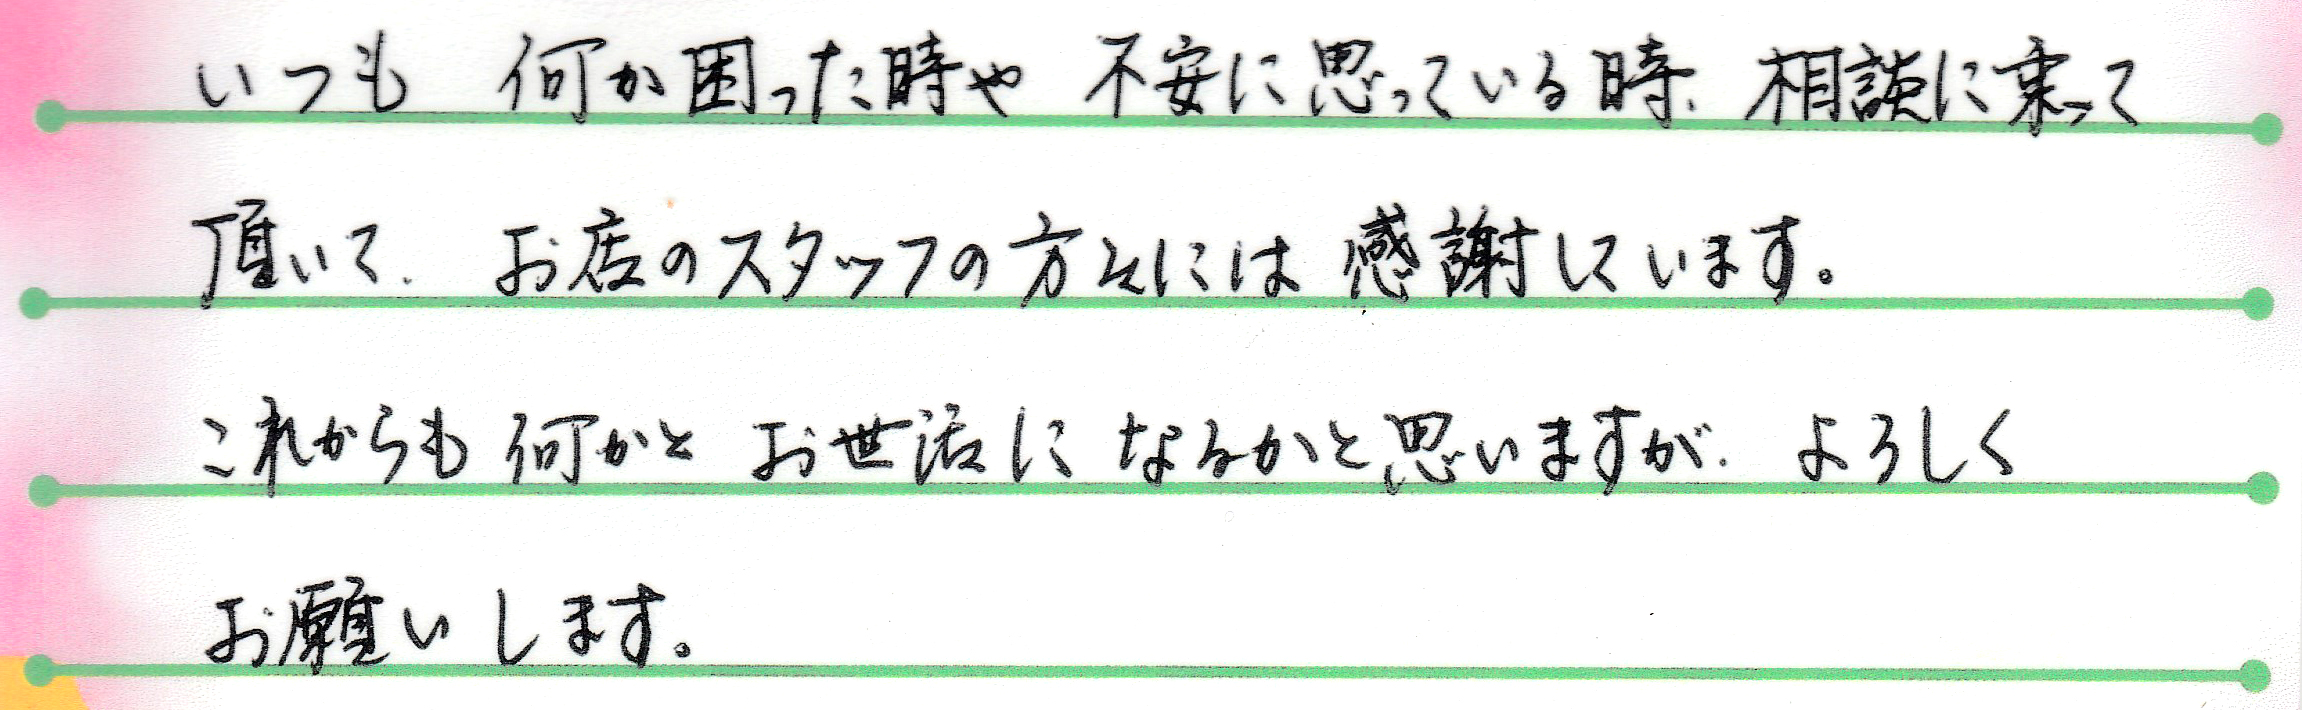 いつも 何か困った時や 不安に思っている時、相談に乗って
頂いて、お店のスタッフの方々には 感謝しています。
これからも 何かと お世話に なるかと思いますが、よろしく
お願いします。